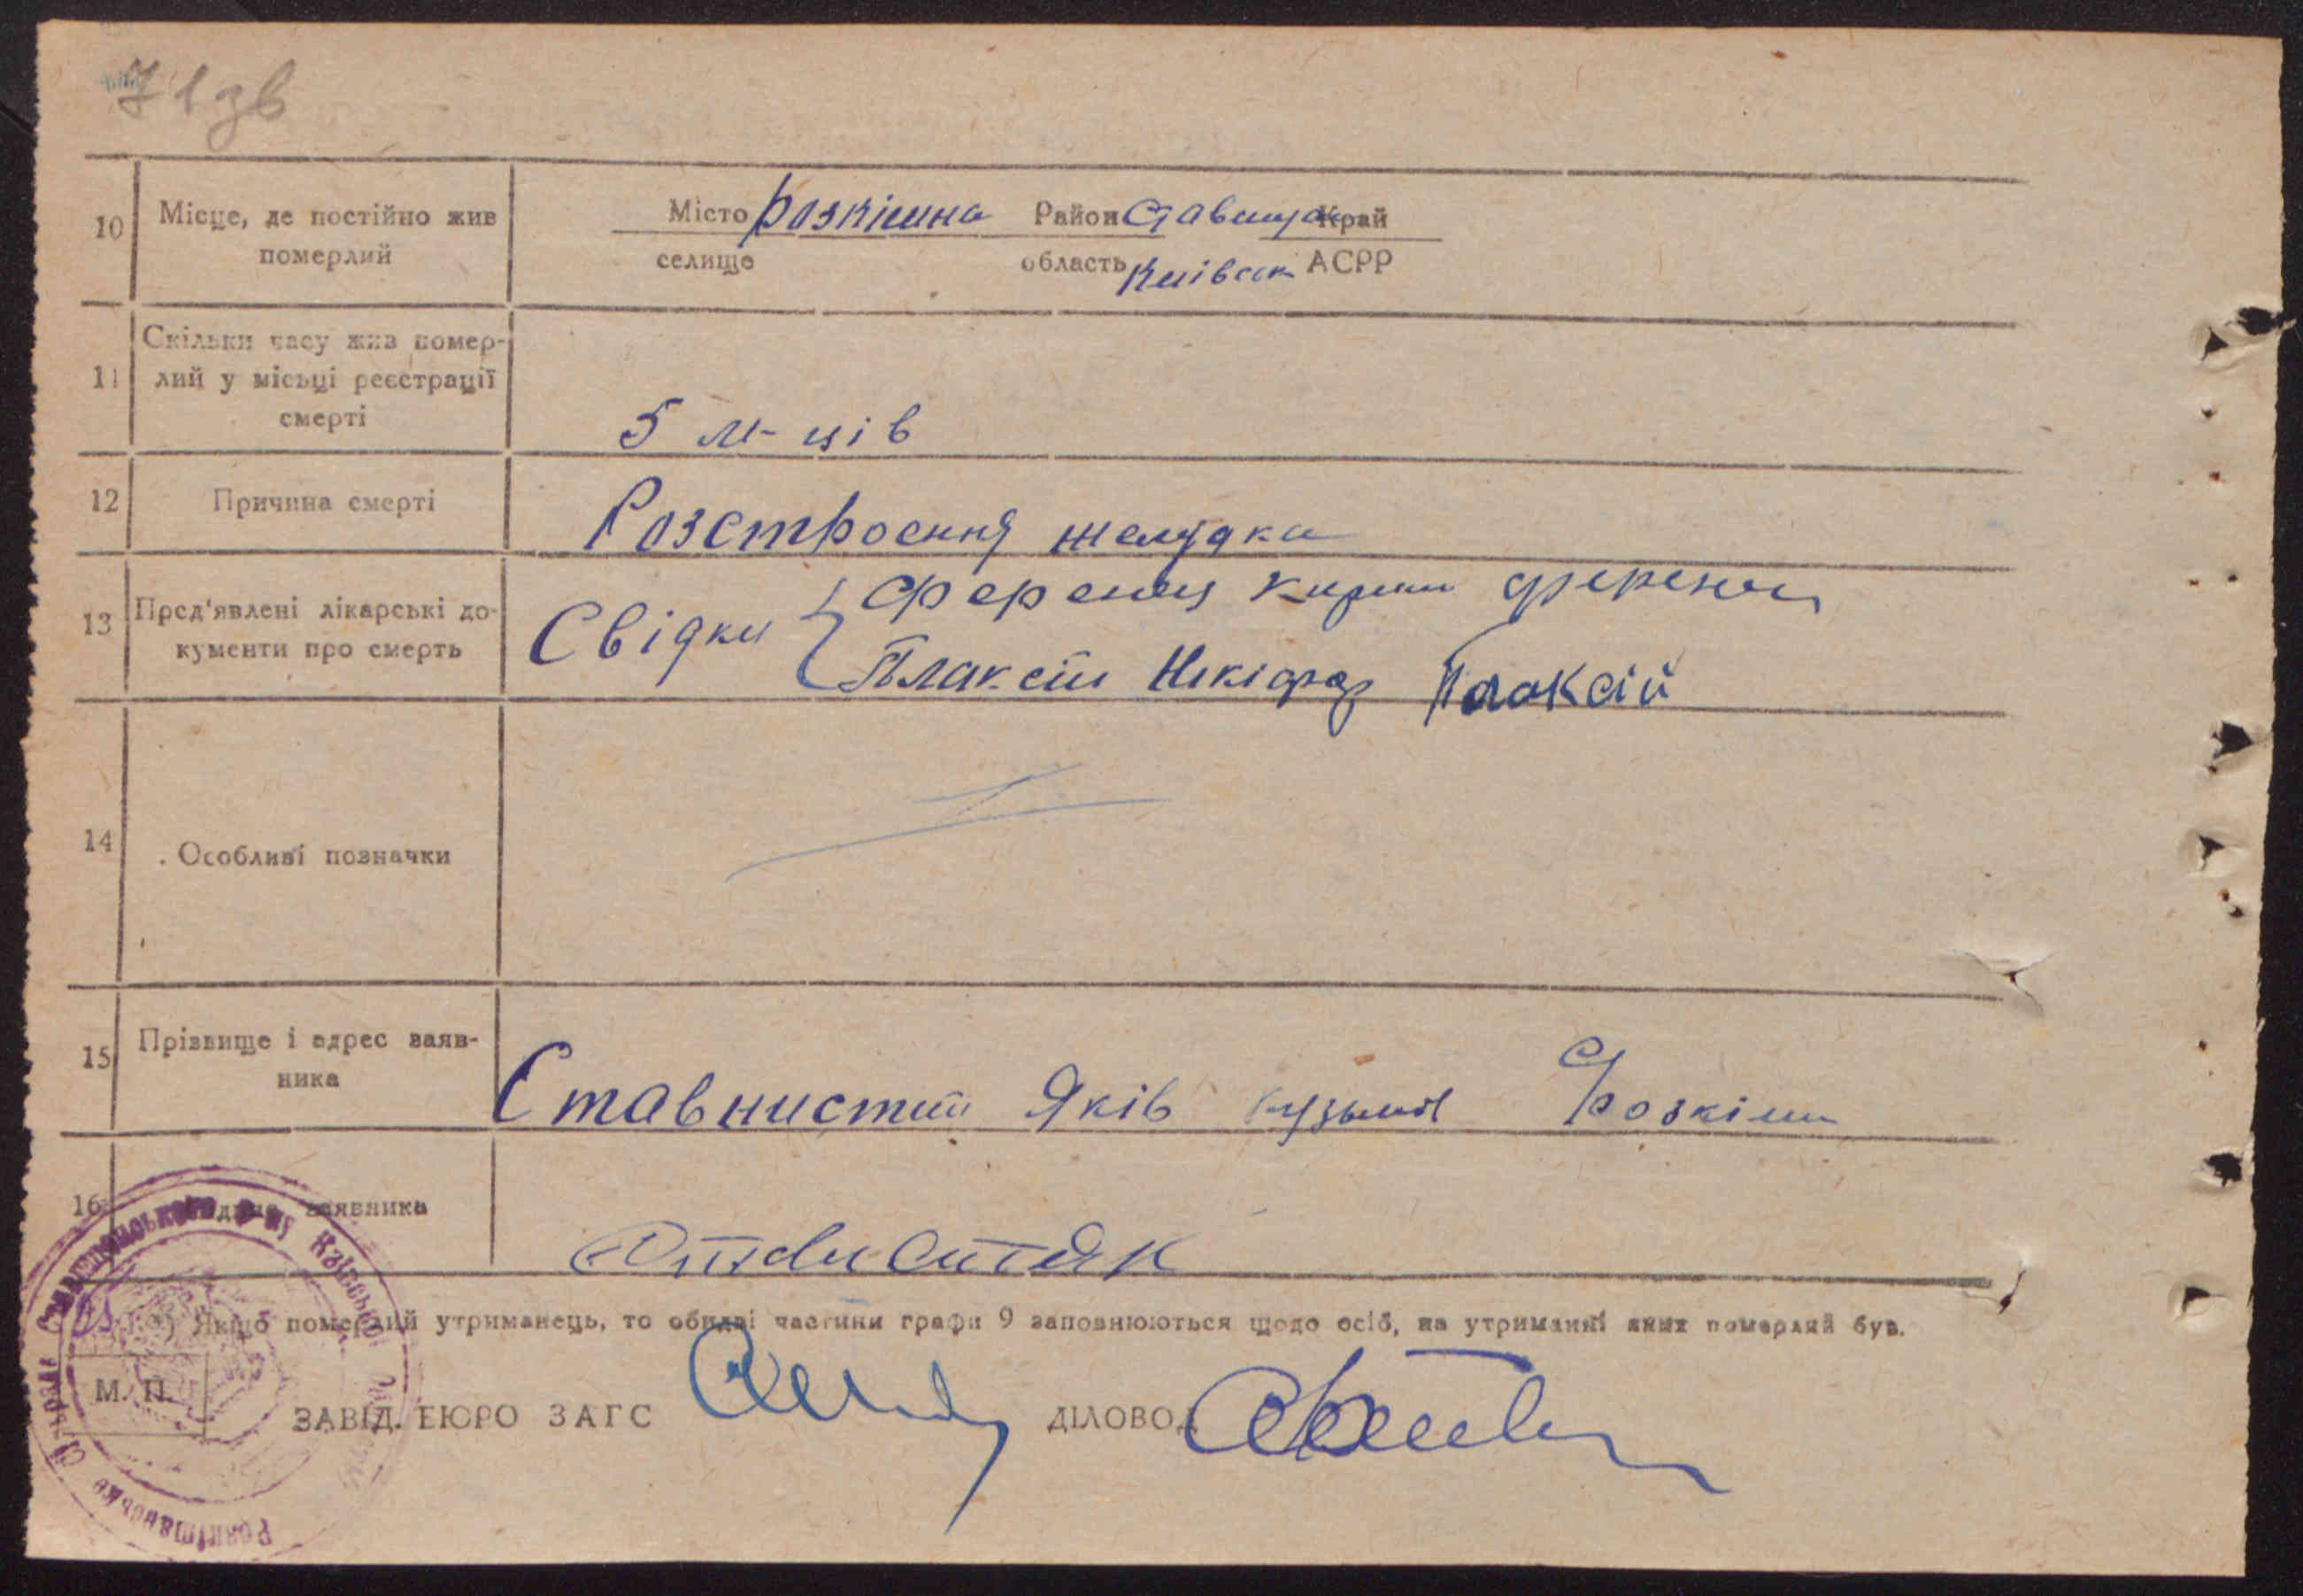 71зв
10 Місце, де постійно жив померлий
Місто Розкішна Район Ставищан Край
селище область Київськ АСРР
11 Скільки часу жив помер-
лий у місьці реєстрації
смерті
5 м-ців
12 Причина смерті Розстроєння желудка
13 Пред'явлені лікарські до-
кументи про смерть
Свідки { Ференец Кирил Ференец
Плаксій Никіфор Плаксій
14 Особливі позначки
15 Прізвище і адрес заяв-
ника
Ставнистий Яків Кузьмов С Розкішн
16 заявника
*) Якщо померлий утриманець, то обидві частини графи 9 заповнюються щодо осіб, на утриманні яких померлий був.
М. П.
ЗАВІД. БЮРО ЗАГС ДІЛОВОД
Розкішнянське Сільрада Ставищанського р-ну Київської